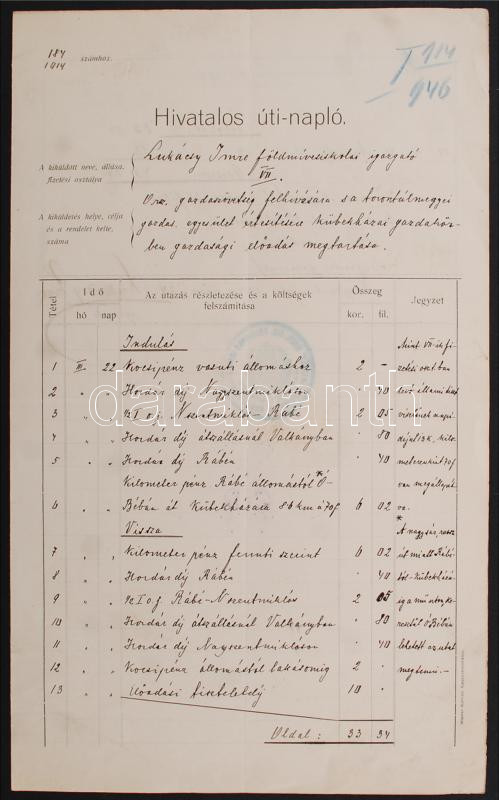 184
1914 számhoz.
I 914
946
Hivatalos úti-napló.
A kiküldött neve, állása, fizetési osztálya
Lukácsy Imre földmívesiskolai igazgató
VII.
A kiküldetés helye, célja és a rendelet kelte, száma
Orsz. gazdaszövetség felhívására s a torontálmegyei
gazdas. egyesület értesítésére Kübekházai gazdakör-
ben gazdasági előadás megtartása.
Tétel Idő hó nap Az utazás részletezése és a költségek felszámítása Összeg kor. fil. Jegyzet
Indulás
1 III. 22 Kocsipénz vasuti állomáshoz 2 -
2 " " Hordár díj Nagyszentmiklóson 40
3 " " N.szentmiklós Rábé 2 05
4 " " Hordár díj átszállásnál Valkányban 80
5 " " Hordár díj Rábén 40
Kilometer pénz Rábé állomástól * Ó-
6 " " Bébán át Kübekházára 8.6 km à 70 f 6 02
Vissza
7 " " Kilometer pénz fennti szerint 6 02
8 " " Hordár díj Rábén 40
9 " " Rábé-N.szentmiklós 2 05
10 " " Hordár díj átszállásnál Valkányban 80
11 " " Hordár díj Nagyszentmiklóson 40
12 " " Kocsipénz állomástól lakásomig 2 -
13 " " Előadási tiszteletdíj 10 -
Oldal: 33 34
Mint VII-ik fi-
zetési oszt.ban
levő állami
viselőnek napi-
díjul 13 k, kilo-
meterenként 70 f
van megállapít-
va.
*
A nagy sár, rossz
út miatt Rábé-
tól-Kübekházá-
ig a
Ó Bébán
lehetett az utat
megtenni.-
darabanth